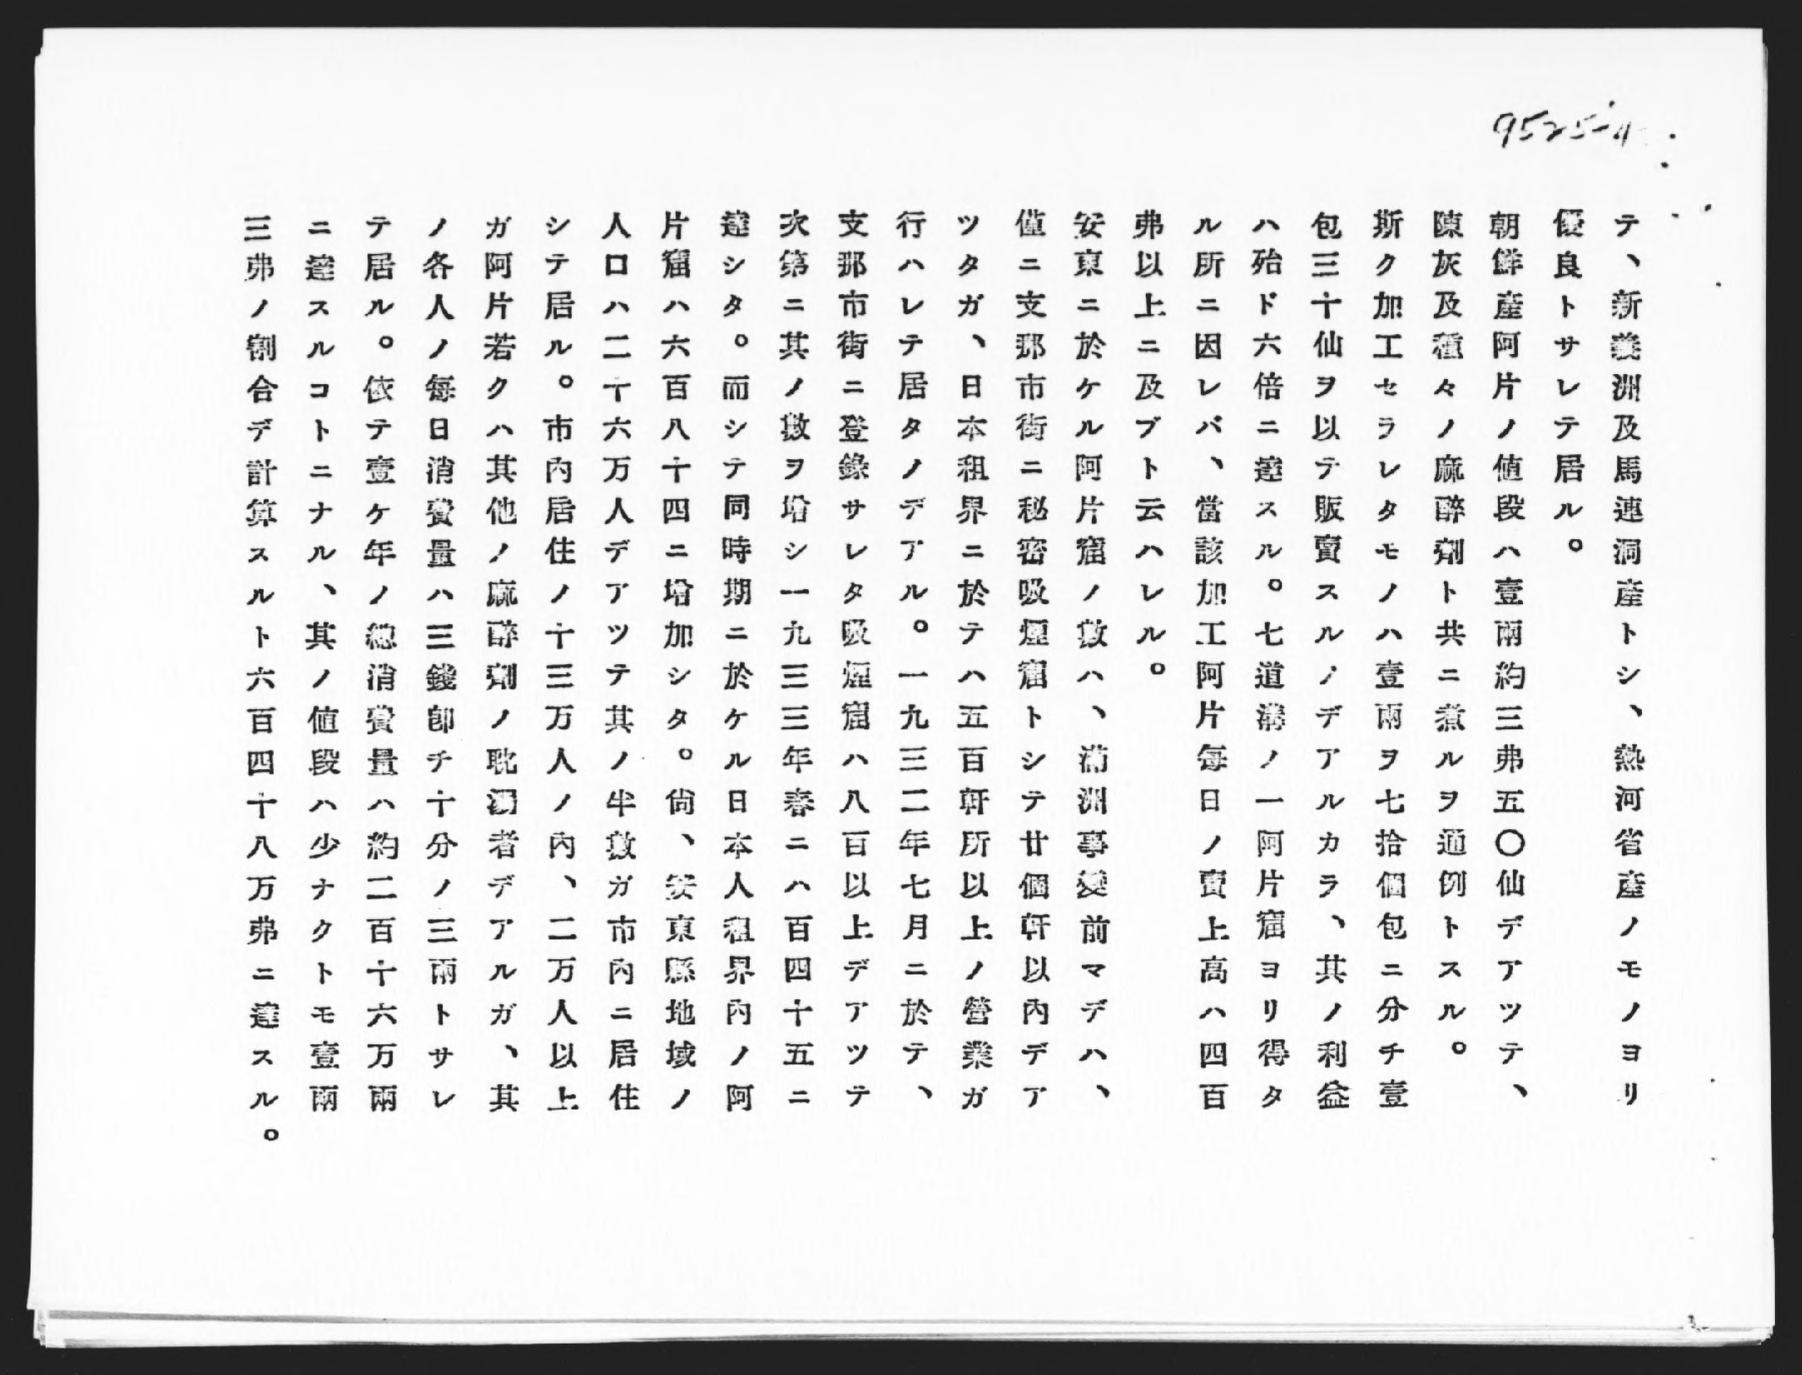 9525-4
テ、新義洲及馬連洞産トシ、熱河省産ノモノヨリ
優良トサレテ居ル。
朝鮮産阿片ノ値段ハ壹兩約三弗五〇仙デアツテ、
陳灰及種々ノ麻醉劑ト共ニ煮ルヲ通例トスル。
斯ク加工セラレタモノハ壹兩ヲ七拾個包ニ分チ壹
包三十仙ヲ以テ販賣スルノデアルカラ、其ノ利益
ハ殆ド六倍ニ達スル。七道溝ノ一阿片窟ヨリ得タ
ル所ニ因レバ、當該加工阿片毎日ノ賣上高ハ四百
弗以上ニ及ブト云ハレル。
安東ニ於ケル阿片窟ノ數ハ、滿洲事變前マデハ、
僅ニ支那市街ニ秘密吸煙窟トシテ廿個軒以內デア
ツタガ、日本租界ニ於テハ五百軒所以上ノ營業ガ
行ハレテ居タノデアル。一九三二年七月ニ於テ、
支那市街ニ登錄サレタ吸煙窟ハ八百以上デアツテ
次第ニ其ノ數ヲ增シ一九三三年春ニハ百四十五ニ
達シタ。而シテ同時期ニ於ケル日本人租界內ノ阿
片窟ハ六百八十四ニ增加シタ。尙、安東縣地域ノ
人口ハ二十六万人デアツテ其ノ半數ガ市內ニ居住
シテ居ル。市內居住ノ十三万人ノ內、二万人以上
ガ阿片若クハ其他ノ麻醉劑ノ耽溺者デアルガ、其
ノ各人ノ每日消費量ハ三錢卽チ十分ノ三兩トサレ
テ居ル。依テ壹ケ年ノ總消費量ハ約二百十六万兩
ニ達スルコトニナル、其ノ値段ハ少ナクトモ壹兩
三弗ノ割合デ計算スルト六百四十八万弗ニ達スル。